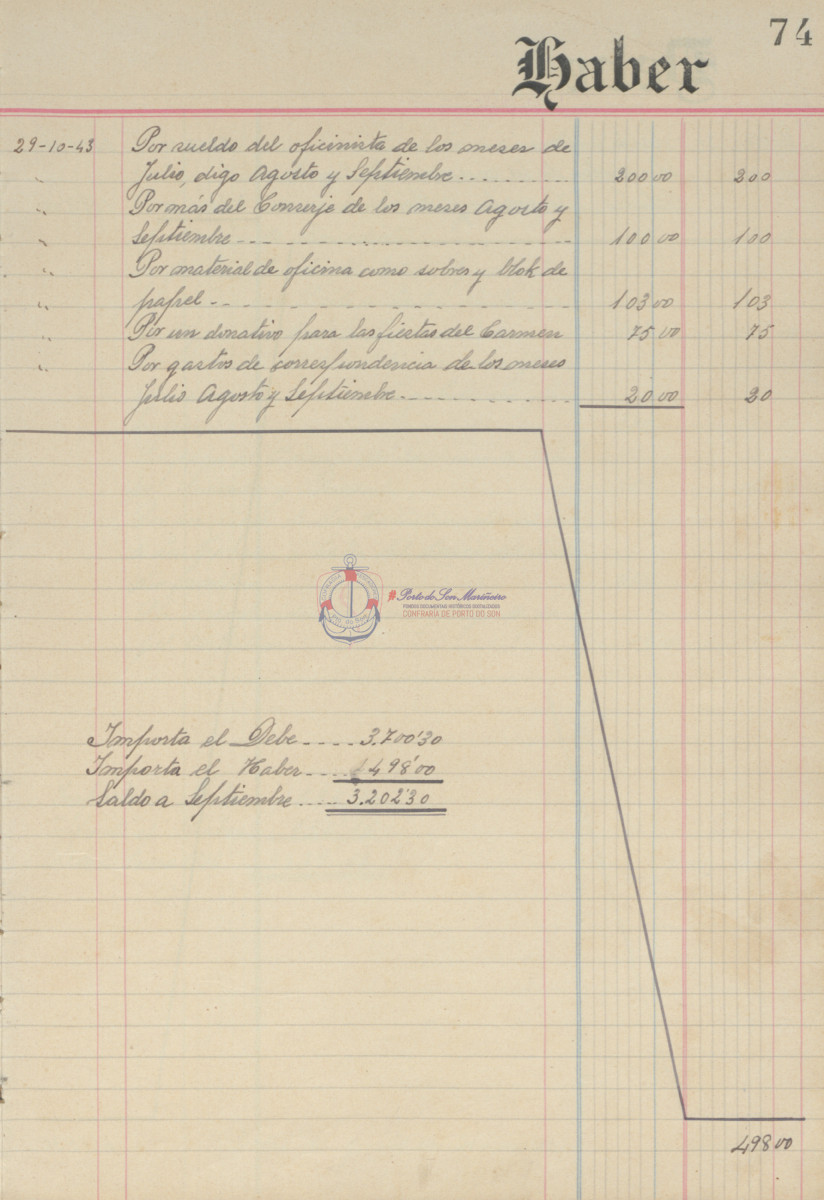 74
Haber
29-10-43 Por sueldo del oficinista de los meses de
" Julio, digo Agosto y Septiembre ........... 200 00 200
" Por más del Conserje de los meses Agosto y
" Septiembre ........... 100 00 100
" Por material de oficina como sobres y blok de
" papel ........... 103 00 103
" Por un donativo para las fiestas del Carmen 75 00 75
" Por gastos de correspondencia de los meses
Julio Agosto y Septiembre ........... 20 00 20
Porto do Son Mariñeiro
FONDOS DOCUMENTAIS HISTÓRICOS DIXITALIZADOS
CONFRARÍA DE PORTO DO SON
Importa el Debe .... 3.700'30
Importa el Haber .... 498'00
Saldo a Septiembre .... 3.202'30
498 00